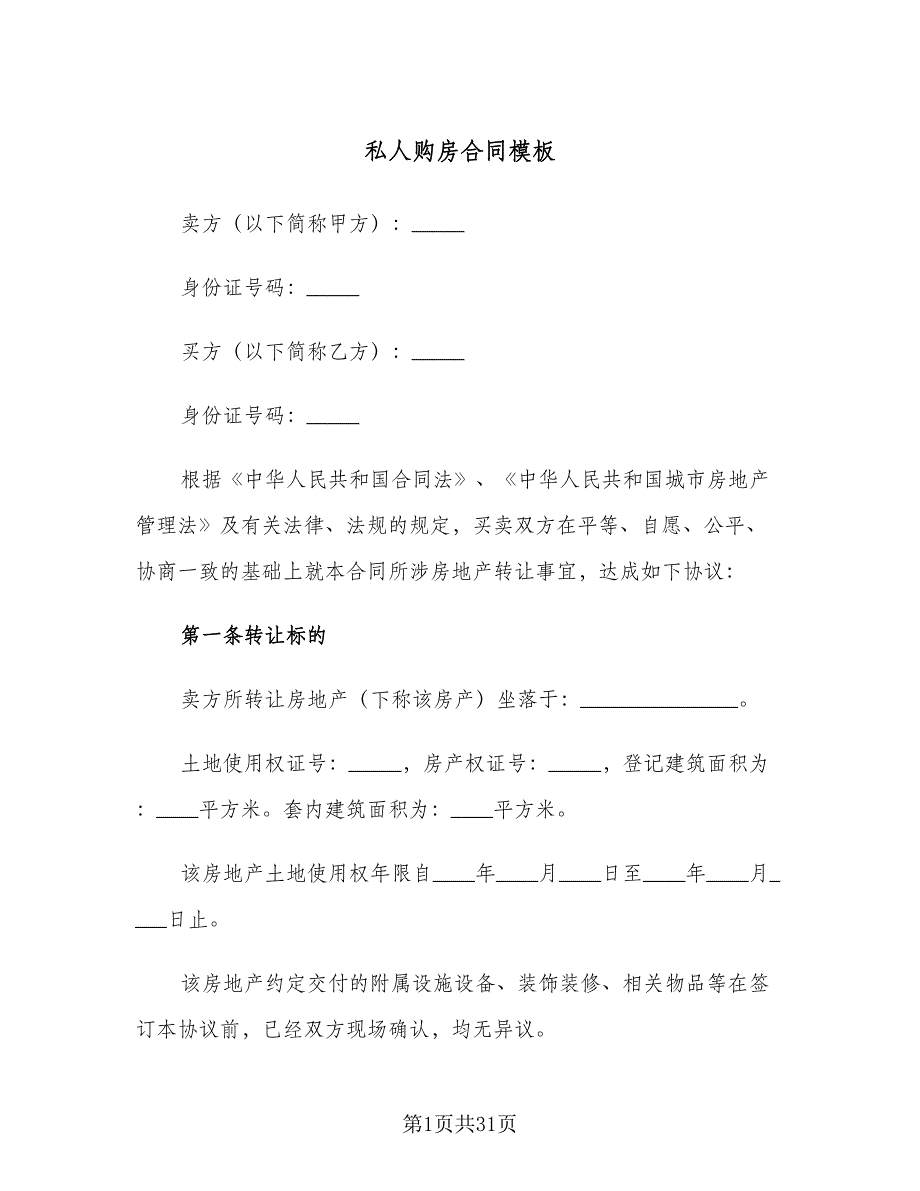 私人购房合同模板
卖方（以下简称甲方）：_____
身份证号码：_____
买方（以下简称乙方）：_____
身份证号码：_____
根据《中华人民共和国合同法》、《中华人民共和国城市房地产
管理法》及有关法律、法规的规定，买卖双方在平等、自愿、公平、
协商一致的基础上就本合同所涉房地产转让事宜，达成如下协议：
第一条转让标的
卖方所转让房地产（下称该房产）坐落于：_______________。
土地使用权证号：_____，房产权证号：_____，登记建筑面积为
：____平方米。套内建筑面积为：____平方米。
该房地产土地使用权年限自____年____月____日至____年____月_
___日止。
该房地产约定交付的附属设施设备、装饰装修、相关物品等在签
订本协议前，已经双方现场确认，均无异议。
第1页共31页